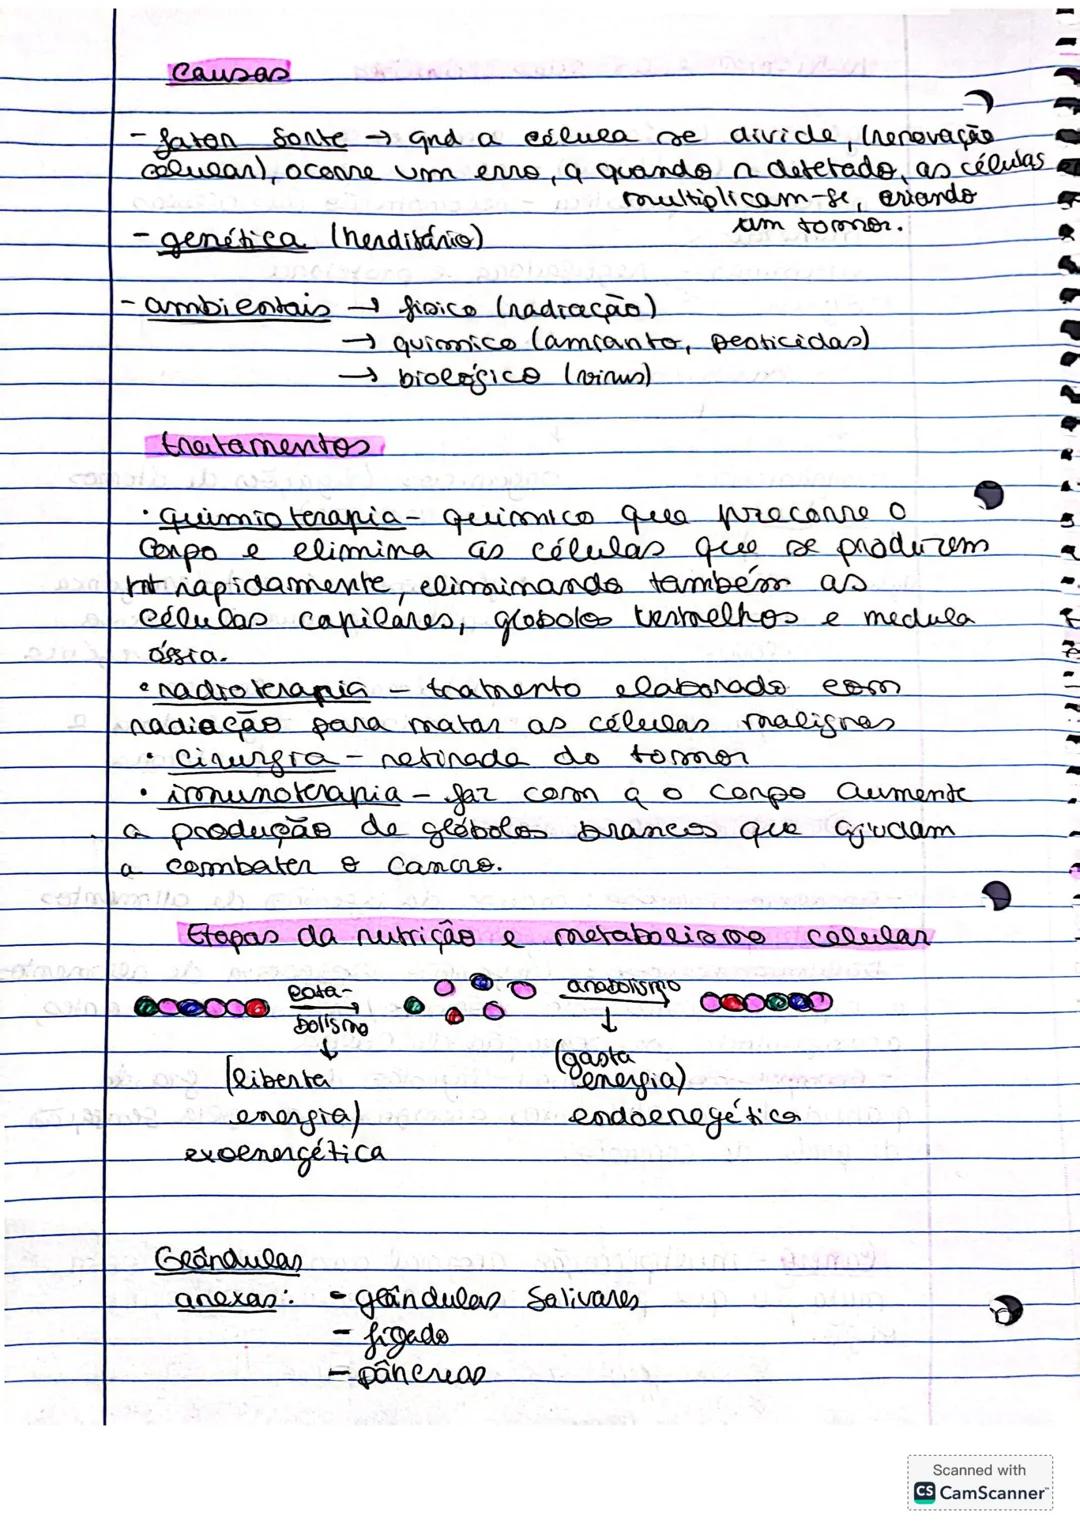 Causas
- fator sorte → qnd a célula se divide, (renovação
celular), ocorre um erro, q quando n detetado, as células
multiplicam-se, criando
um tomor.
- genética (herditário)
- ambientais → fisico (radiação)
→ quimico (amianto, pesticidas)
→ biológico (virus)
tratamentos
· quimioterapia - quimico que precorre o
corpo e elimina as células que se produzem
mt rapidamente, eliminando também as
células capilares, globolos vermelhos e medula
óssia.
• radioterapia - tratmento elaborado com
radiação para matar as células malignas
• cirurgia - retirada do tomor
• imunoterapia - faz com q o corpo aumente
a produção de glóbolos brancos que ajudam
a combater o cancro.
Etapas da nutrição e metabolismo celular
cata-
bolismo
anabolismo
→
↓
(liberta
energia)
exoenergética
→
↓
(gasta
energia)
endoenegética
Glândulas
anexas: - glândulas Salivares
- fígado
- pâncreas
Scanned with
CS CamScanner